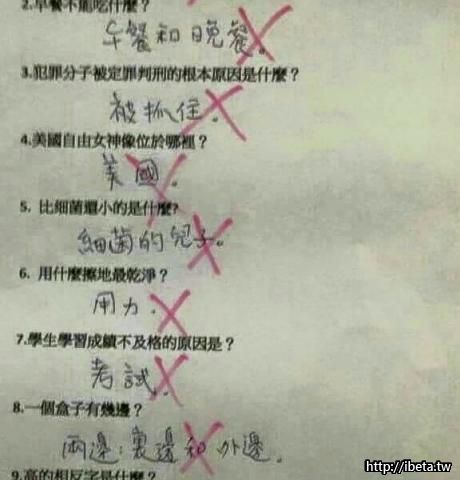 2.早餐不能吃什麼？
午餐和晚餐。
3.犯罪分子被定罪判刑的根本原因是什麼？
被抓住。
4.美國自由女神像位於哪裡？
美國。
5. 比細菌還小的是什麼?
細菌的兒子。
6. 用什麼擦地最乾淨？
用力.
7.學生學習成績不及格的原因是？
考試.
8.一個盒子有幾邊？
兩邊：裏邊和外邊.
9.高的相反字是什麼？
http://ibeta.tw